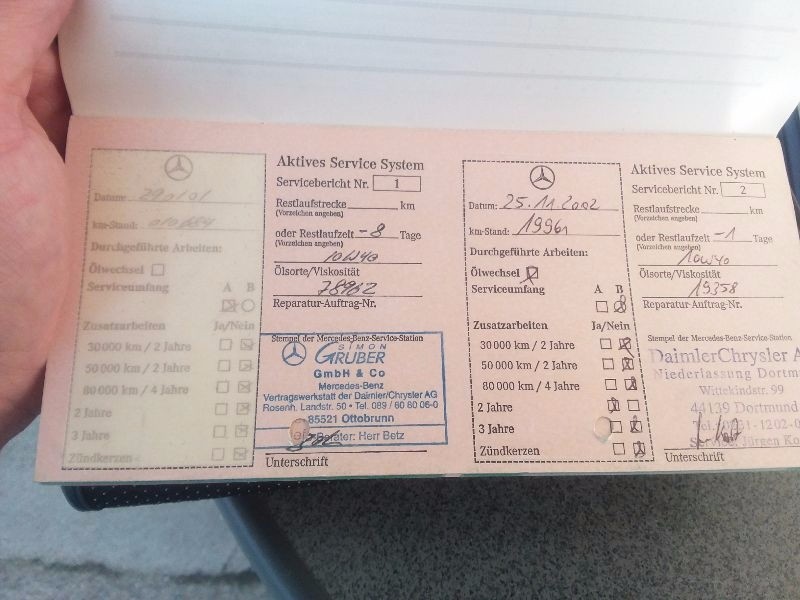 Aktives Service System
Servicebericht Nr. 1
Datum: 29 01 01
Restlaufstrecke km
(Vorzeichen angeben)
km-Stand:
oder Restlaufzeit -8 Tage
(Vorzeichen angeben)
Durchgeführte Arbeiten:
10W40
Ölwechsel
Ölsorte/Viskosität
Serviceumfang A B
78962
Reparatur-Auftrag-Nr.
Zusatzarbeiten Ja/Nein
30 000 km / 2 Jahre
50 000 km / 2 Jahre
80 000 km / 4 Jahre
2 Jahre
3 Jahre
Zündkerzen
Stempel der Mercedes-Benz-Service-Station
SIMON
GRUBER
GmbH & Co
Mercedes-Benz
Vertragswerkstatt der Daimler/Chrysler AG
Rosenh. Landstr. 50 • Tel. 089 / 60 80 06-0
85521 Ottobrunn
Berater: Herr Betz
Unterschrift
Aktives Service System
Servicebericht Nr. 2
Datum: 25.11.2002
Restlaufstrecke km
(Vorzeichen angeben)
km-Stand: 19961
oder Restlaufzeit -1 Tage
(Vorzeichen angeben)
Durchgeführte Arbeiten:
10W40
Ölwechsel
Ölsorte/Viskosität
Serviceumfang A B
19358
Reparatur-Auftrag-Nr.
Zusatzarbeiten Ja/Nein
30 000 km / 2 Jahre
50 000 km / 2 Jahre
80 000 km / 4 Jahre
2 Jahre
3 Jahre
Zündkerzen
Stempel der Mercedes-Benz-Service-Station
DaimlerChrysler A
Niederlassung Dortm
Wittekindstr. 99
44139 Dortmund
Jürgen Ko
Unterschrift